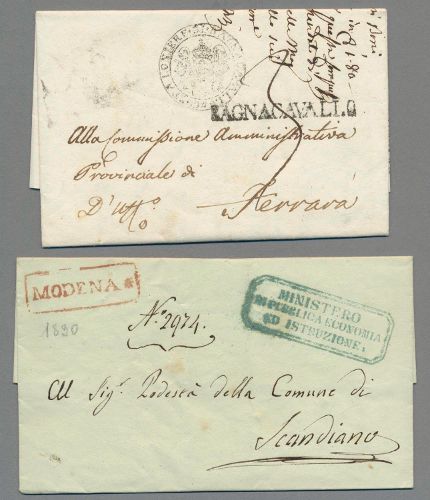 BAGNACAVALLO
Alla Commissione Amministrativa
Provinciale di
D'Uff.o
Ferrara
MODENA
1830
MINISTERO
DI PUBBLICA ECONOMIA
ED ISTRUZIONE.
No. 2974.
Al Sigr. Podestà della Comune di
Scandiano